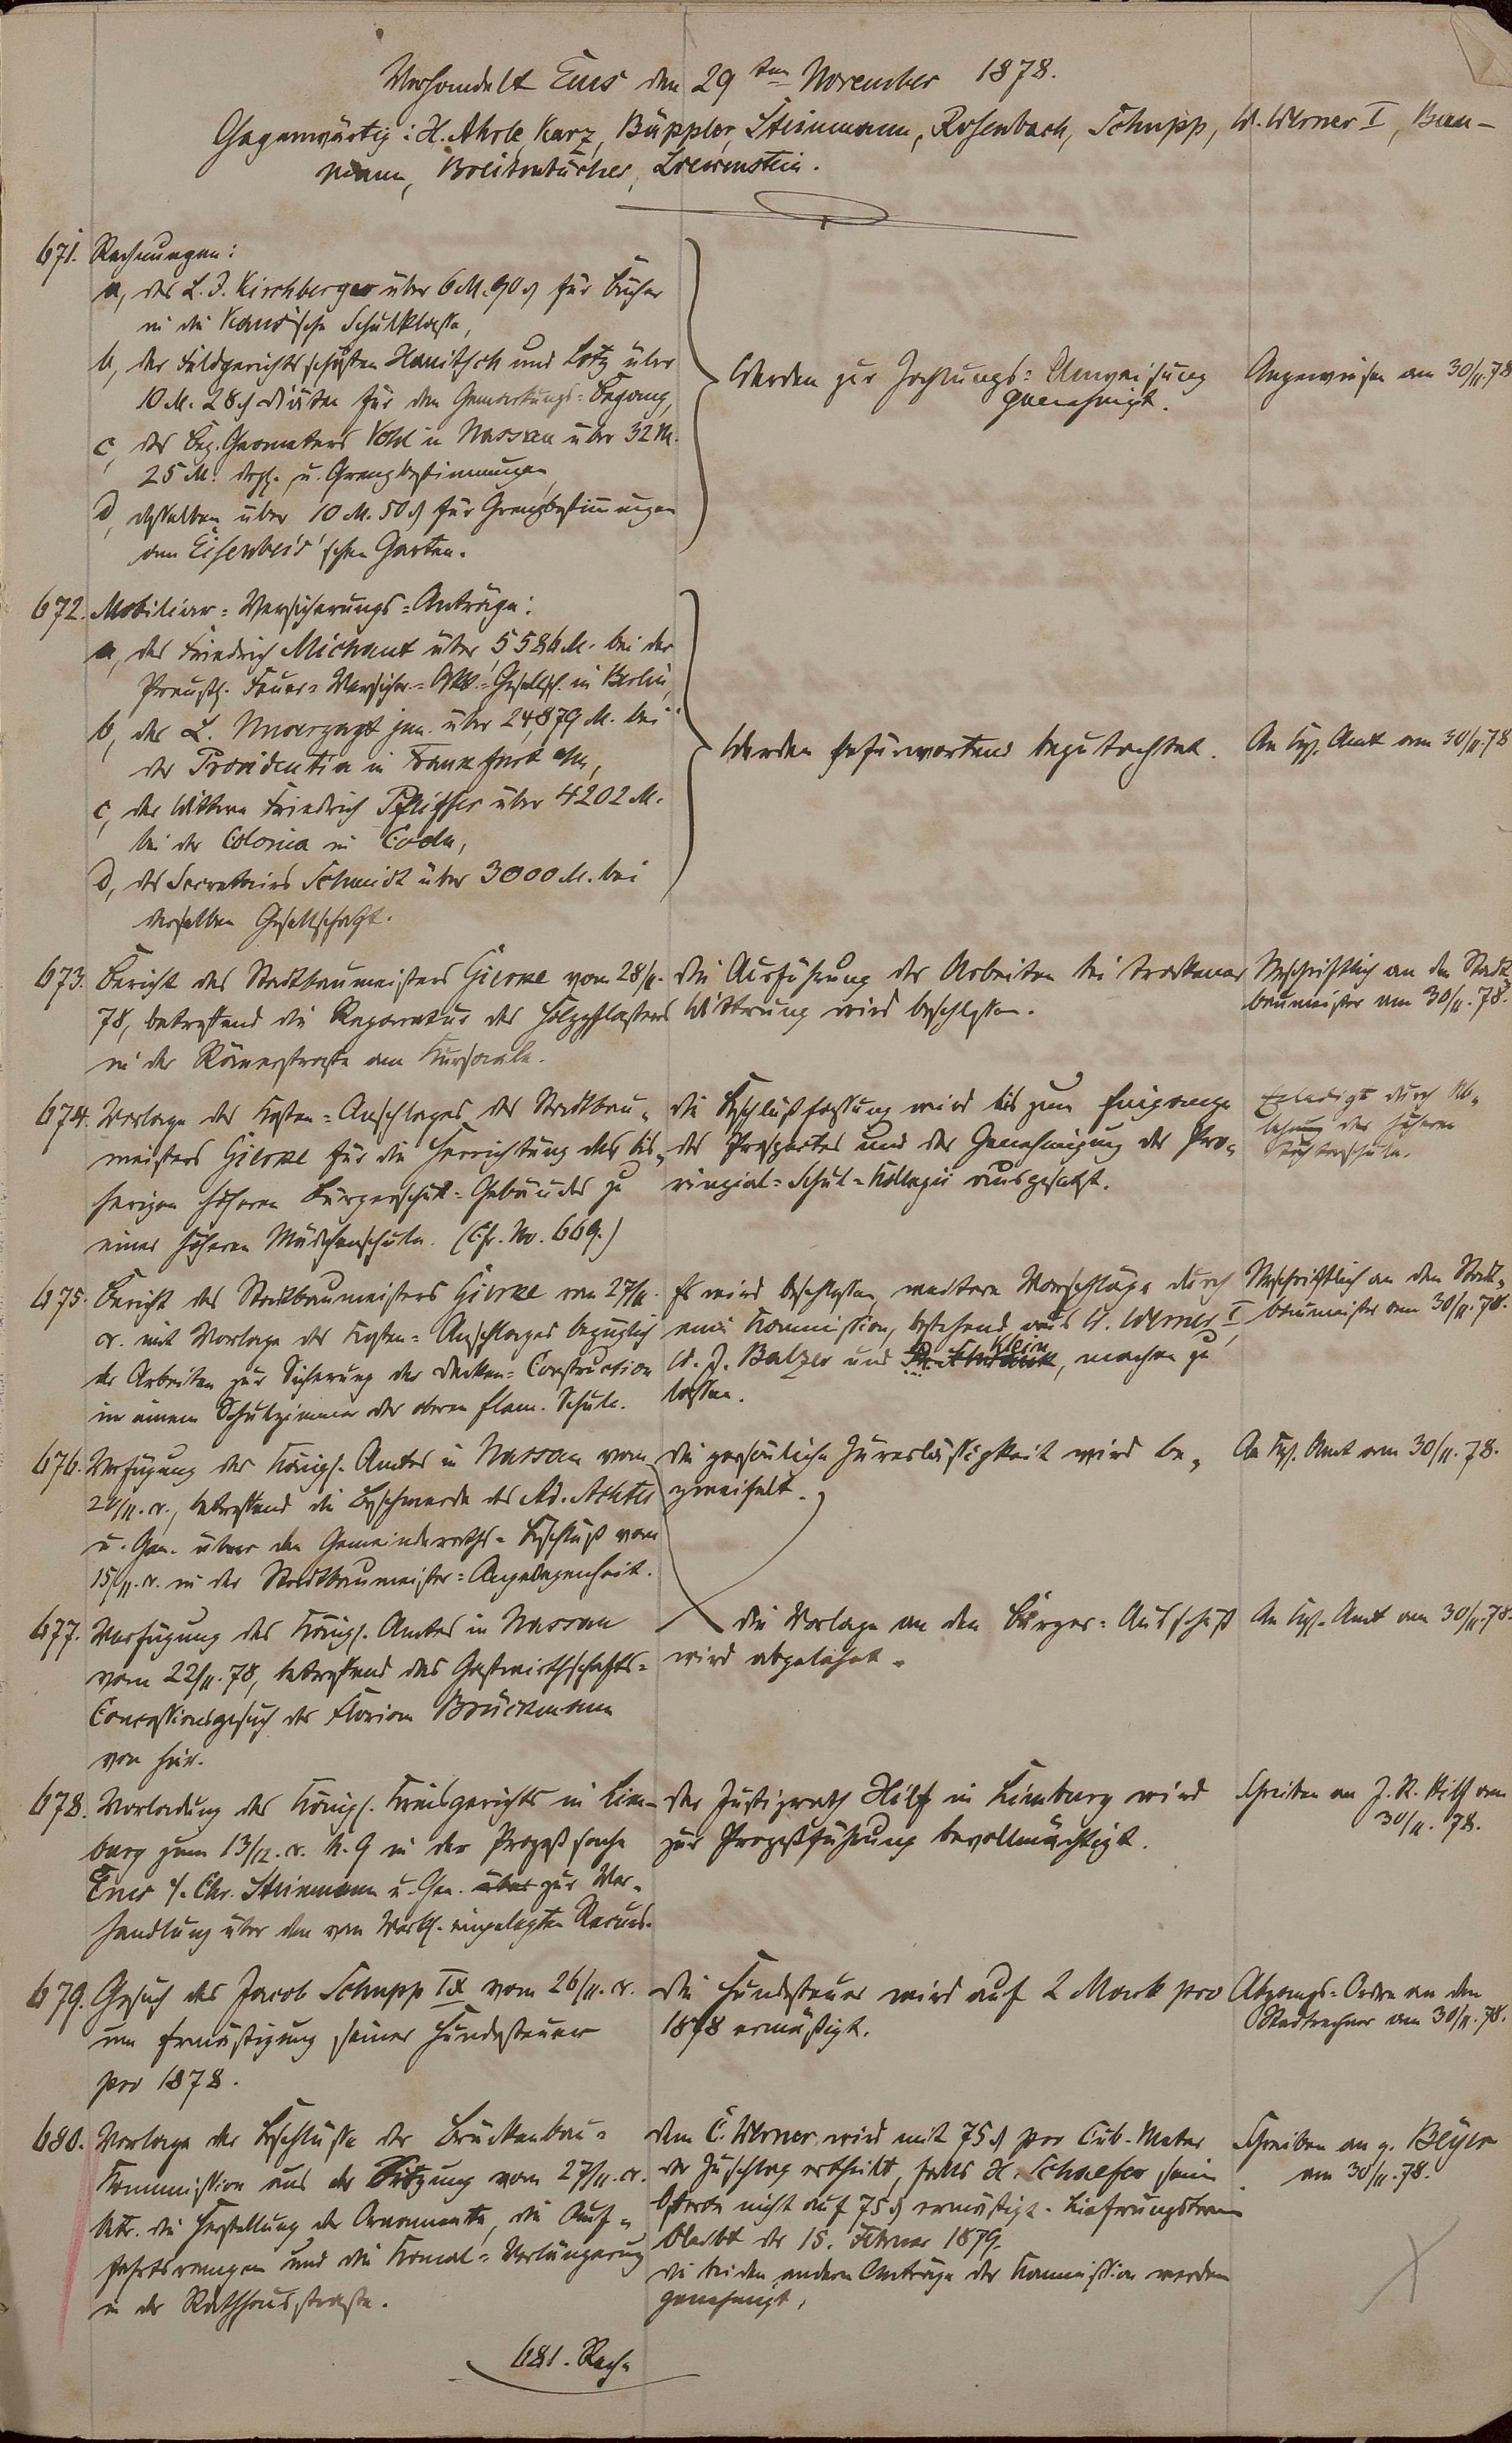 Verhandelt Ems den 29ten November 1878.
Gegenwärtig: H. Ahrle, Kurz, Büppler, Steinmann, Rosenbach, Schupp, W. Werner I, Bau-
mann, Breitenbücher, Loewenstein.
671. Rechnungen:
a, des L. J. Kirchberger über 6 M. 90 ₰ für Bücher
in die Kaus'sche Schulklasse,
b, der Feldgerichtsschöffen Hanitsch und Lotz über
10 M. 28 ₰ Diäten für den Gemarkungs-Begang,
c, des Bez. Geometers Vohl in Nassau über 32 M.
25 M. desgl. u. Grenzbestimmungen,
d, desselben über 10 M. 50 ₰ für Grenzbestimmungen
am Eisenbeis'schen Garten.
Werden zur Zahlungs-Anweisung
genehmigt.
Angewiesen am 30/11.78
672. Mobiliar-Versicherungs-Anträge:
a, des Friedrich Michaut über 5586 M. bei der
Preuß. Feuer-Versicher.-Akt.-Gesellsch. in Berlin,
b, des L. Unverzagt jun. über 24,879 M. bei
der Providentia in Frankfurt a/M,
c, der Wittwe Friedrich Pfeiffer über 4202 M.
bei der Colonia in Coeln,
d, des Secretairs Schmidt über 3000 M. bei
derselben Gesellschaft.
Werden befürwortend begutachtet.
An Kgl. Amt am 30/11.78
673. Bericht des Stadtbaumeisters Gierke vom 28/11.
78, betreffend die Reparatur des Holzpflasters
in der Römerstraße am Kursaale.
Die Ausführung der Arbeiten bei trockener
Witterung wird beschlossen.
Abschriftlich an den Stadt
baumeister am 30/11.78.
674. Vorlage des Kosten-Anschlages des Stadtbau-
meisters Gierke für die Herrichtung des bis-
herigen höheren Bürgerschul-Gebäudes zu
einer höheren Mädchenschule. (Cfr. No. 669.)
Die Beschlußfassung wird bis zum Eingange
des Prospectes und der Genehmigung des Pro-
vinzial-Schul-Kollegii ausgesetzt.
Erledigt durch Ab-
lehnung der höheren
Töchterschule.
675. Bericht des Stadtbaumeisters Gierke vom 27/11.
cr. mit Vorlage des Kosten-Anschlages bezüglich
der Arbeiten zur Sicherung der Decken-Construction
in einem Schulzimmer der oberen Elem. Schule.
Es wird beschlossen, weitere Vorschläge durch
eine Kommission, bestehend aus W. Werner I,
W. J. Balzer und Klein, machen zu
lassen.
Abschriftlich an den Stadt-
baumeister am 30/11.78.
676. Verfügung des Königl. Amtes in Nassau vom
26/11. cr., betreffend die Beschwerde des Ad. Achtes
u. Gen. über den Gemeinderaths-Beschluß vom
15/11. cr. in der Stadtbaumeister-Angelegenheit.
Die persönliche Zuverlässigkeit wird be-
zweifelt.
An Kgl. Amt am 30/11.78.
677. Verfügung des Königl. Amtes in Nassau
vom 22/11.78, betreffend das Gastwirthschafts-
Concessionsgesuch des Florian Brückmann
von hier.
Die Vorlage an den Bürger-Ausschuß
wird abgelehnt.
An Kgl. Amt am 30/11.78.
678. Vorladung des Königl. Kreisgerichts in Lim-
burg zum 13/12. cr. V. 9 in der Prozeßsache
Ems ./. Chr. Steinmann u. Gen. über zur Ver-
handlung über den vom Verkl. eingelegten Recurs.
Der Justizrath Hilf in Limburg wird
zur Prozeßführung bevollmächtigt.
Schreiben an J. R. Hilf am
30/11.78.
679. Gesuch des Jacob Schupp IX vom 26/11. cr.
um Ermäßigung seiner Hundesteuer
pro 1878.
Die Hundesteuer wird auf 2 Mark pro
1878 ermäßigt.
Abgangs-Ordre an den
Stadtrechner am 30/11.78.
680. Vorlage der Beschlüsse der Brückenbau-
Kommission aus der Sitzung vom 27/11. cr.
betr. die Herstellung der Ornamente, die Auf-
fahrtsrampen und die Kanal-Verlängerung
in der Rathhausstraße.
Dem C. Werner wird mit 75 ₰ pro Cub-Meter
der Zuschlag ertheilt, falls H. Schaefer sein
Offerte nicht auf 75 ₰ ermäßigt. Lieferungstermin
bleibt der 15. Februar 1879.
Die beiden andern Anträge der Kommission werden
genehmigt.
Schreiben an g. Beyer
am 30/11.78.
681. Rech-